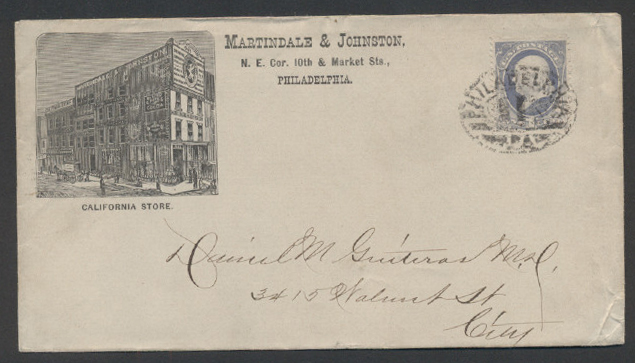 MARTINDALE & JOHNSTON,
N. E. Cor. 10th & Market Sts.,
PHILADELPHIA.
PHILADELPHIA
PA.
CALIFORNIA STORE.
Daniel M Guiteras M.D.
3415 Walnut St
City